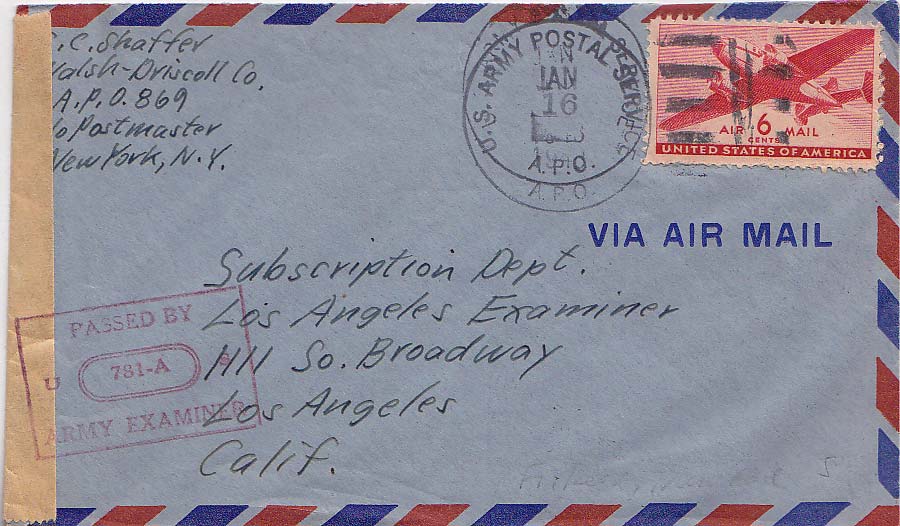 .C. Shaffer
Walsh-Driscoll Co.
A.P.O. 869
c/o Postmaster
New York, N.Y.
U.S. ARMY POSTAL SERVICE
JAN
16
A.P.O.
A.P.O.
AIR 6 MAIL
CENTS
UNITED STATES OF AMERICA
VIA AIR MAIL
Subscription Dept.
Los Angeles Examiner
1111 So. Broadway
Los Angeles
Calif.
PASSED BY
U 781-A S
ARMY EXAMINER